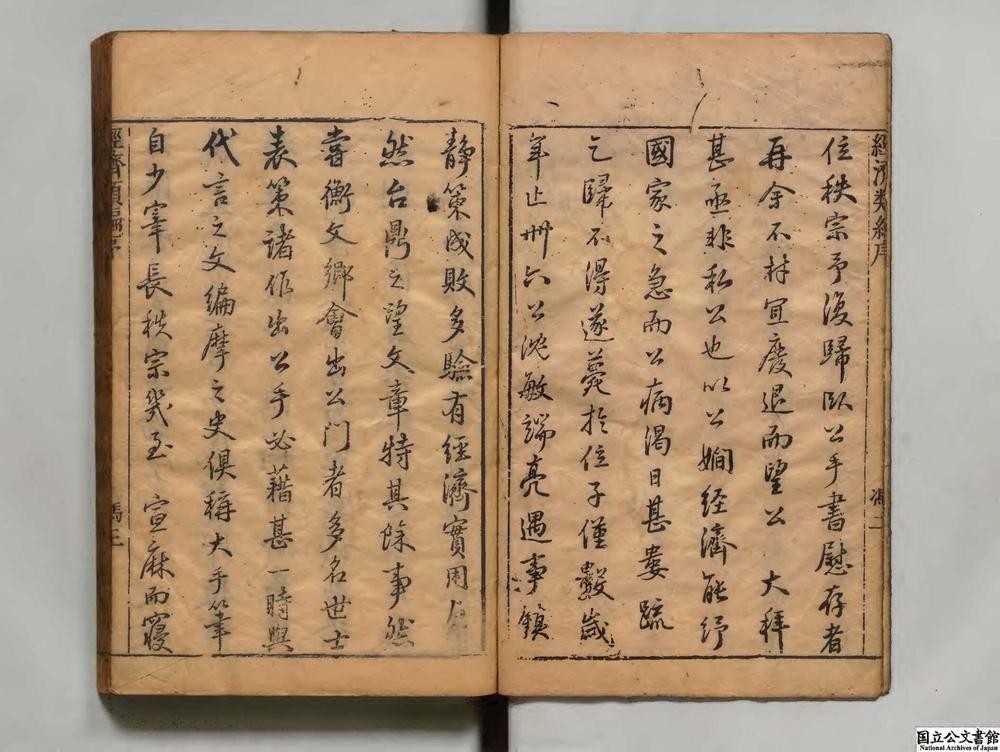 經濟類編序
馮二
位秩宗予復歸臥公手書慰存者
再余不材宜廢退而望公大拜
甚亟非私公也以公嫺經濟能紓
國家之急而公病渴日甚婁疏
乞歸不得遂薨於位子僅數歲
年止卅六公沈敏端亮遇事鎮
靜策成敗多驗有經濟實用
然台鼎之望文章特其餘事然
嘗衡文鄉會出公門者多名世士
表策諸作出公手必藉甚一時與
代言之文編摩之史俱稱大手筆
自少宰長秩宗幾至宣麻而寢
經濟類編序
馮三
国立公文書館
National Archives of Japan